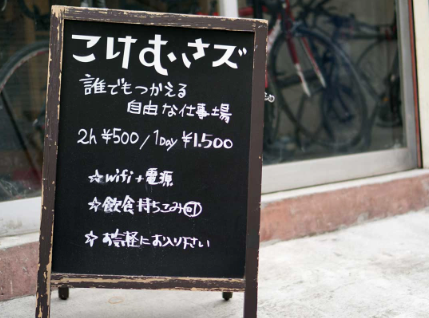 こけむさズ
誰でもつかえる
自由な仕事場
2h ¥500 / 1Day ¥1.500
☆wifi+電源
☆飲食持ちこみ可
☆お気軽にお入り下さい